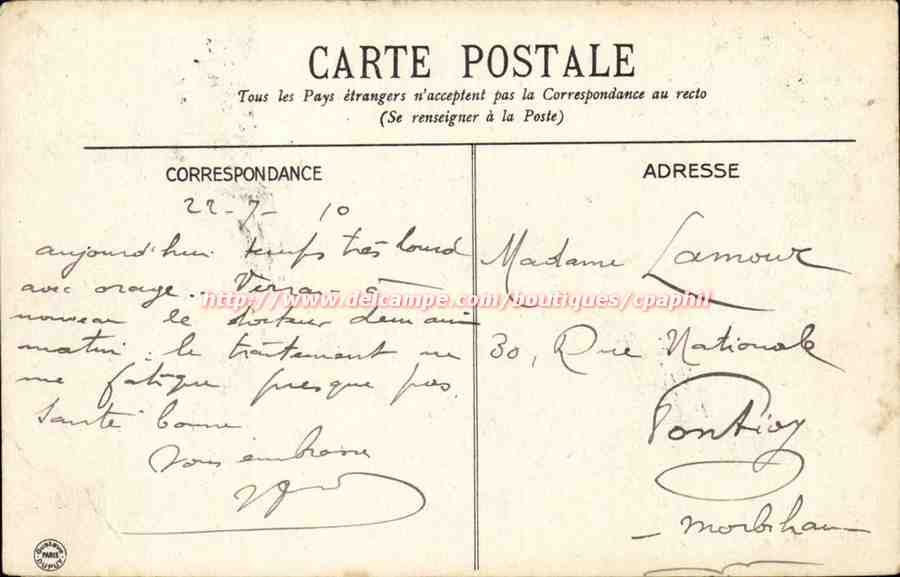 CARTE POSTALE
Tous les Pays étrangers n'acceptent pas la Correspondance au recto
(Se renseigner à la Poste)
CORRESPONDANCE
22-7-10
aujourd'hui temps très lourd
avec orage. Verrai à
nouveau le docteur demain
matin. le traitement ne
me fatigue presque pas.
Santé bonne
Vous embrasse
ADRESSE
Madame Lamour
30, Rue Nationale
Pontivy
- Morbihan -
http://www.delcampe.com/boutiques/cpaphil
GUSTAVE
PARIS
DUPUY